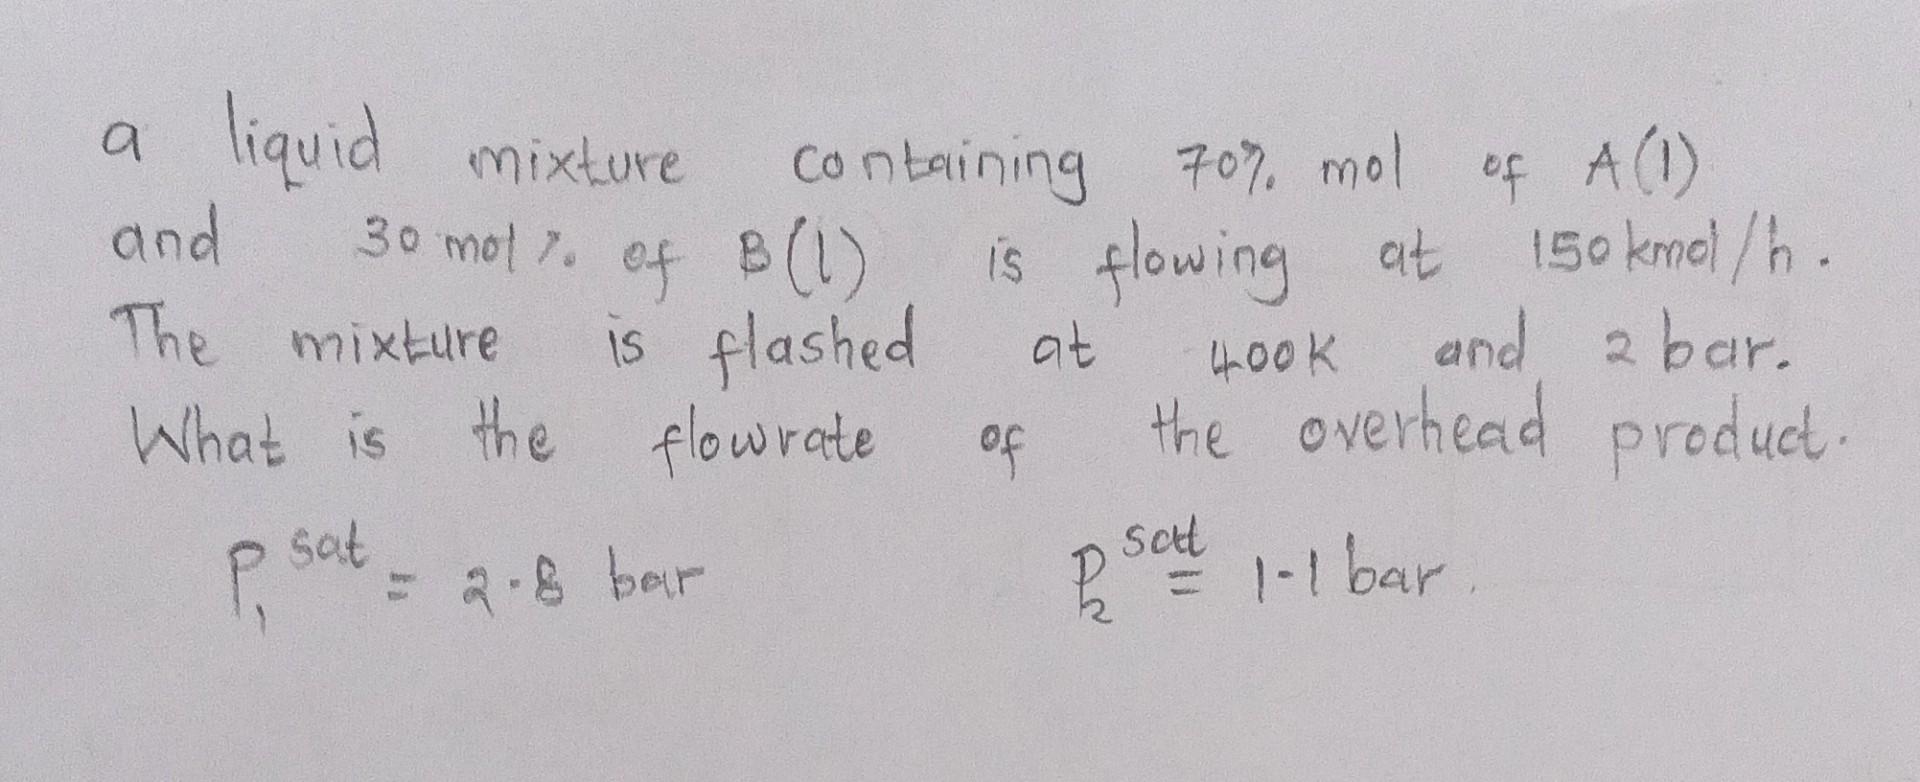 a liquid mixture containing 70% mol of A(l)
and 30 mol % of B(l) is flowing at 150 kmol/h.
The mixture is flashed at 400K and 2 bar.
What is the flowrate of the overhead product.
P₁ˢᵃᵗ = 2.8 bar P₂ˢᵃᵗ = 1.1 bar.